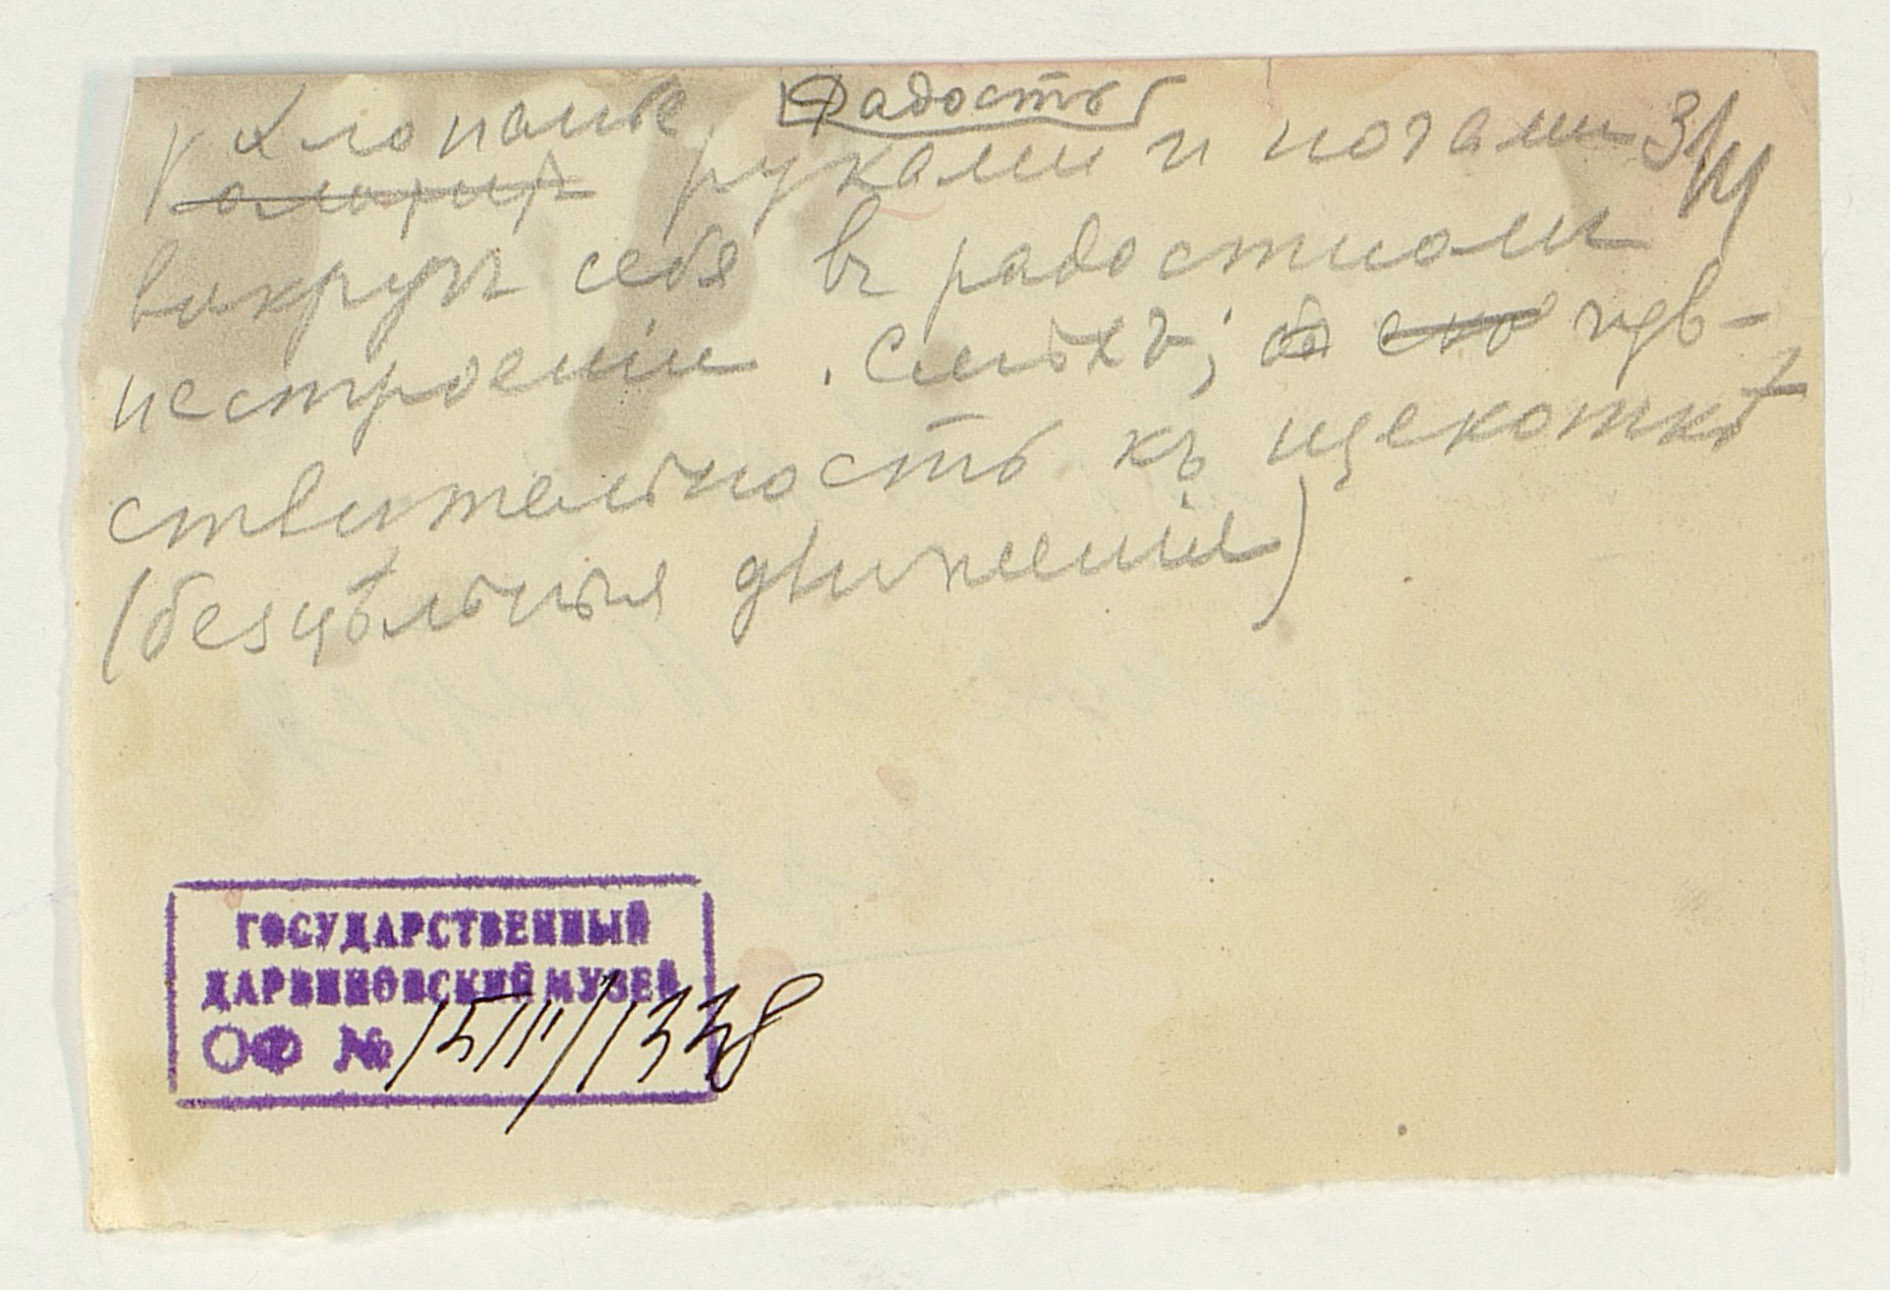 Радость
Хлопанье руками и ногами 3/VI
вокругъ себя въ радостном
настроеніи. Смѣхъ; чув-
ствительность къ щекоткѣ
(безцѣльныя движенія)
ГОСУДАРСТВЕННЫЙ
ДАРВИНОВСКИЙ МУЗЕЙ
ОФ № 15111/1338